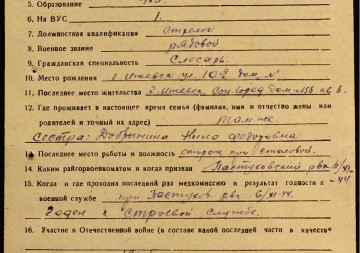 5. Образование
6. На ВУС 1.
7. Должностная квалификация Стрелок
8. Военное звание рядовой
9. Гражданская специальность Слесарь.
10. Место рождения г. Ижевск ул. 10-я дом
11. Последнее место жительства г. Ижевск Соц. Город дом №156 кв 6.
12. Где проживает в настоящее время семья (фамилия, имя и отчество жены или
родителей и точный их адрес) там же
Сестра: Добрынина Нина Федоровна
13. Последнее место работы и должность сторож при столовой.
14. Каким райгорвоенкоматом и когда призван Пастуховский рвк 6/XI-
44.
15. Когда и где проходил последний раз медкомиссию и результат годности к
военной службе при Пастухов. рвк 6/XI-44.
Годен к строевой службе.
16. Участие в Отечественной войне (в составе какой последней части в качеств